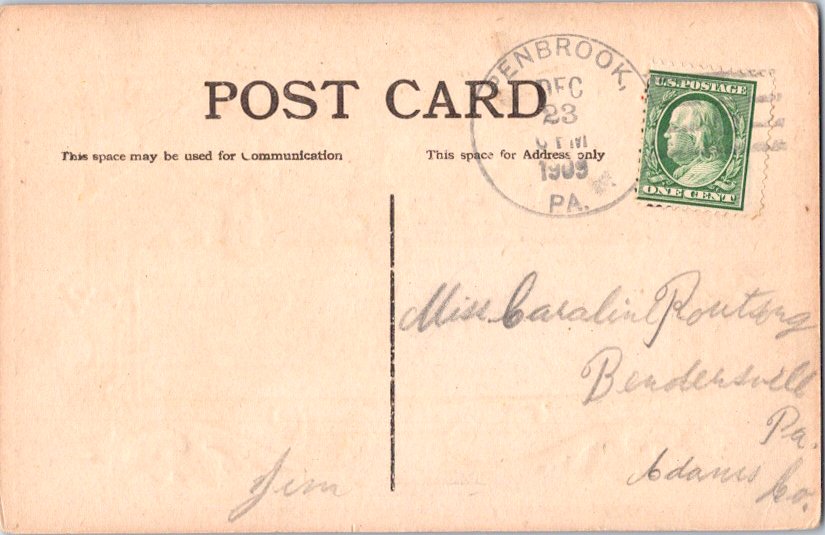 POST CARD
This space may be used for Communication
This space for Address only
PENBROOK,
DEC
23
6 PM
1909
PA.
U.S. POSTAGE
ONE CENT
Miss Caralin Routsong
Bendersvill
Pa.
Adams Co.
Jim